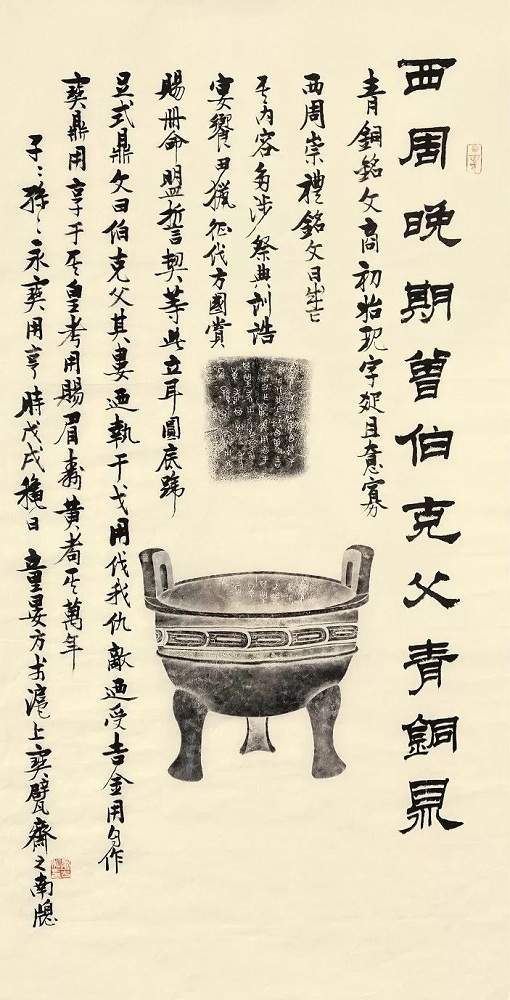 西周晚期曾伯克父青銅鼎
青銅銘文商初始現字且意寡
西周崇禮銘文日
其内容多涉祭典訓誥
宴饗田獵征伐方國賞
賜冊命盟誓契等此立耳圓底蹄
足式鼎文曰伯克父其婁迺執干戈用伐我仇敵迺受吉金用自作
寶鼎用享于其皇考用賜眉壽黃耇其萬年
子〻孫〻永寶用享時戊戌穐日童晏方书滬上寶甓齋之南牕